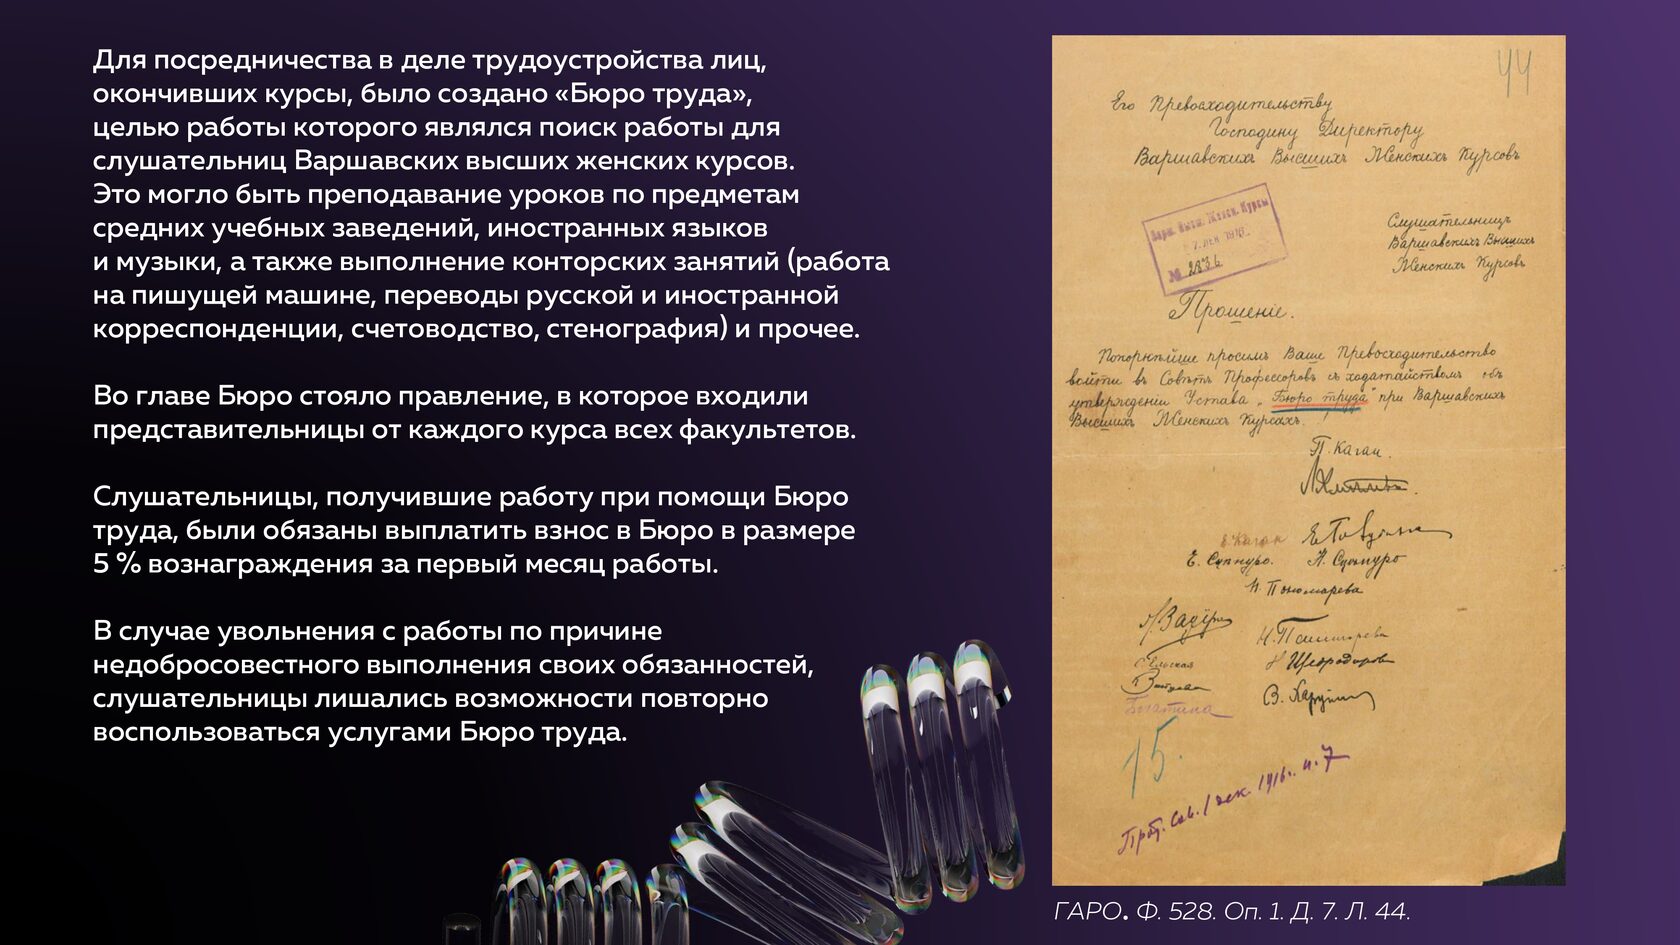 Для посредничества в деле трудоустройства лиц,
окончивших курсы, было создано «Бюро труда»,
целью работы которого являлся поиск работы для
слушательниц Варшавских высших женских курсов.
Это могло быть преподавание уроков по предметам
средних учебных заведений, иностранных языков
и музыки, а также выполнение конторских занятий (работа
на пишущей машине, переводы русской и иностранной
корреспонденции, счетоводство, стенография) и прочее.
Во главе Бюро стояло правление, в которое входили
представительницы от каждого курса всех факультетов.
Слушательницы, получившие работу при помощи Бюро
труда, были обязаны выплатить взнос в Бюро в размере
5 % вознаграждения за первый месяц работы.
В случае увольнения с работы по причине
недобросовестного выполнения своих обязанностей,
слушательницы лишались возможности повторно
воспользоваться услугами Бюро труда.
44
Его Превосходительству
Господину Директору
Варшавскихъ Высшихъ Женскихъ Курсовъ
Варш. Высш. Женск. Курсы
7. ДЕК 1916
№ 2836
Слушательницъ
Варшавскихъ Высшихъ
Женскихъ Курсовъ
Прошеніе.
Покорнѣйше просимъ Ваше Превосходительство
войти въ Совѣтъ Профессоровъ съ ходатайствомъ объ
утвержденіи Устава „Бюро труда" при Варшавскихъ
Высшихъ Женскихъ Курсахъ.
П. Каган.
Е. Каган
Н. Пономарева
15.
Прот. Сов. 1 дек. 1916 г. п. 7
ГАРО. Ф. 528. Оп. 1. Д. 7. Л. 44.